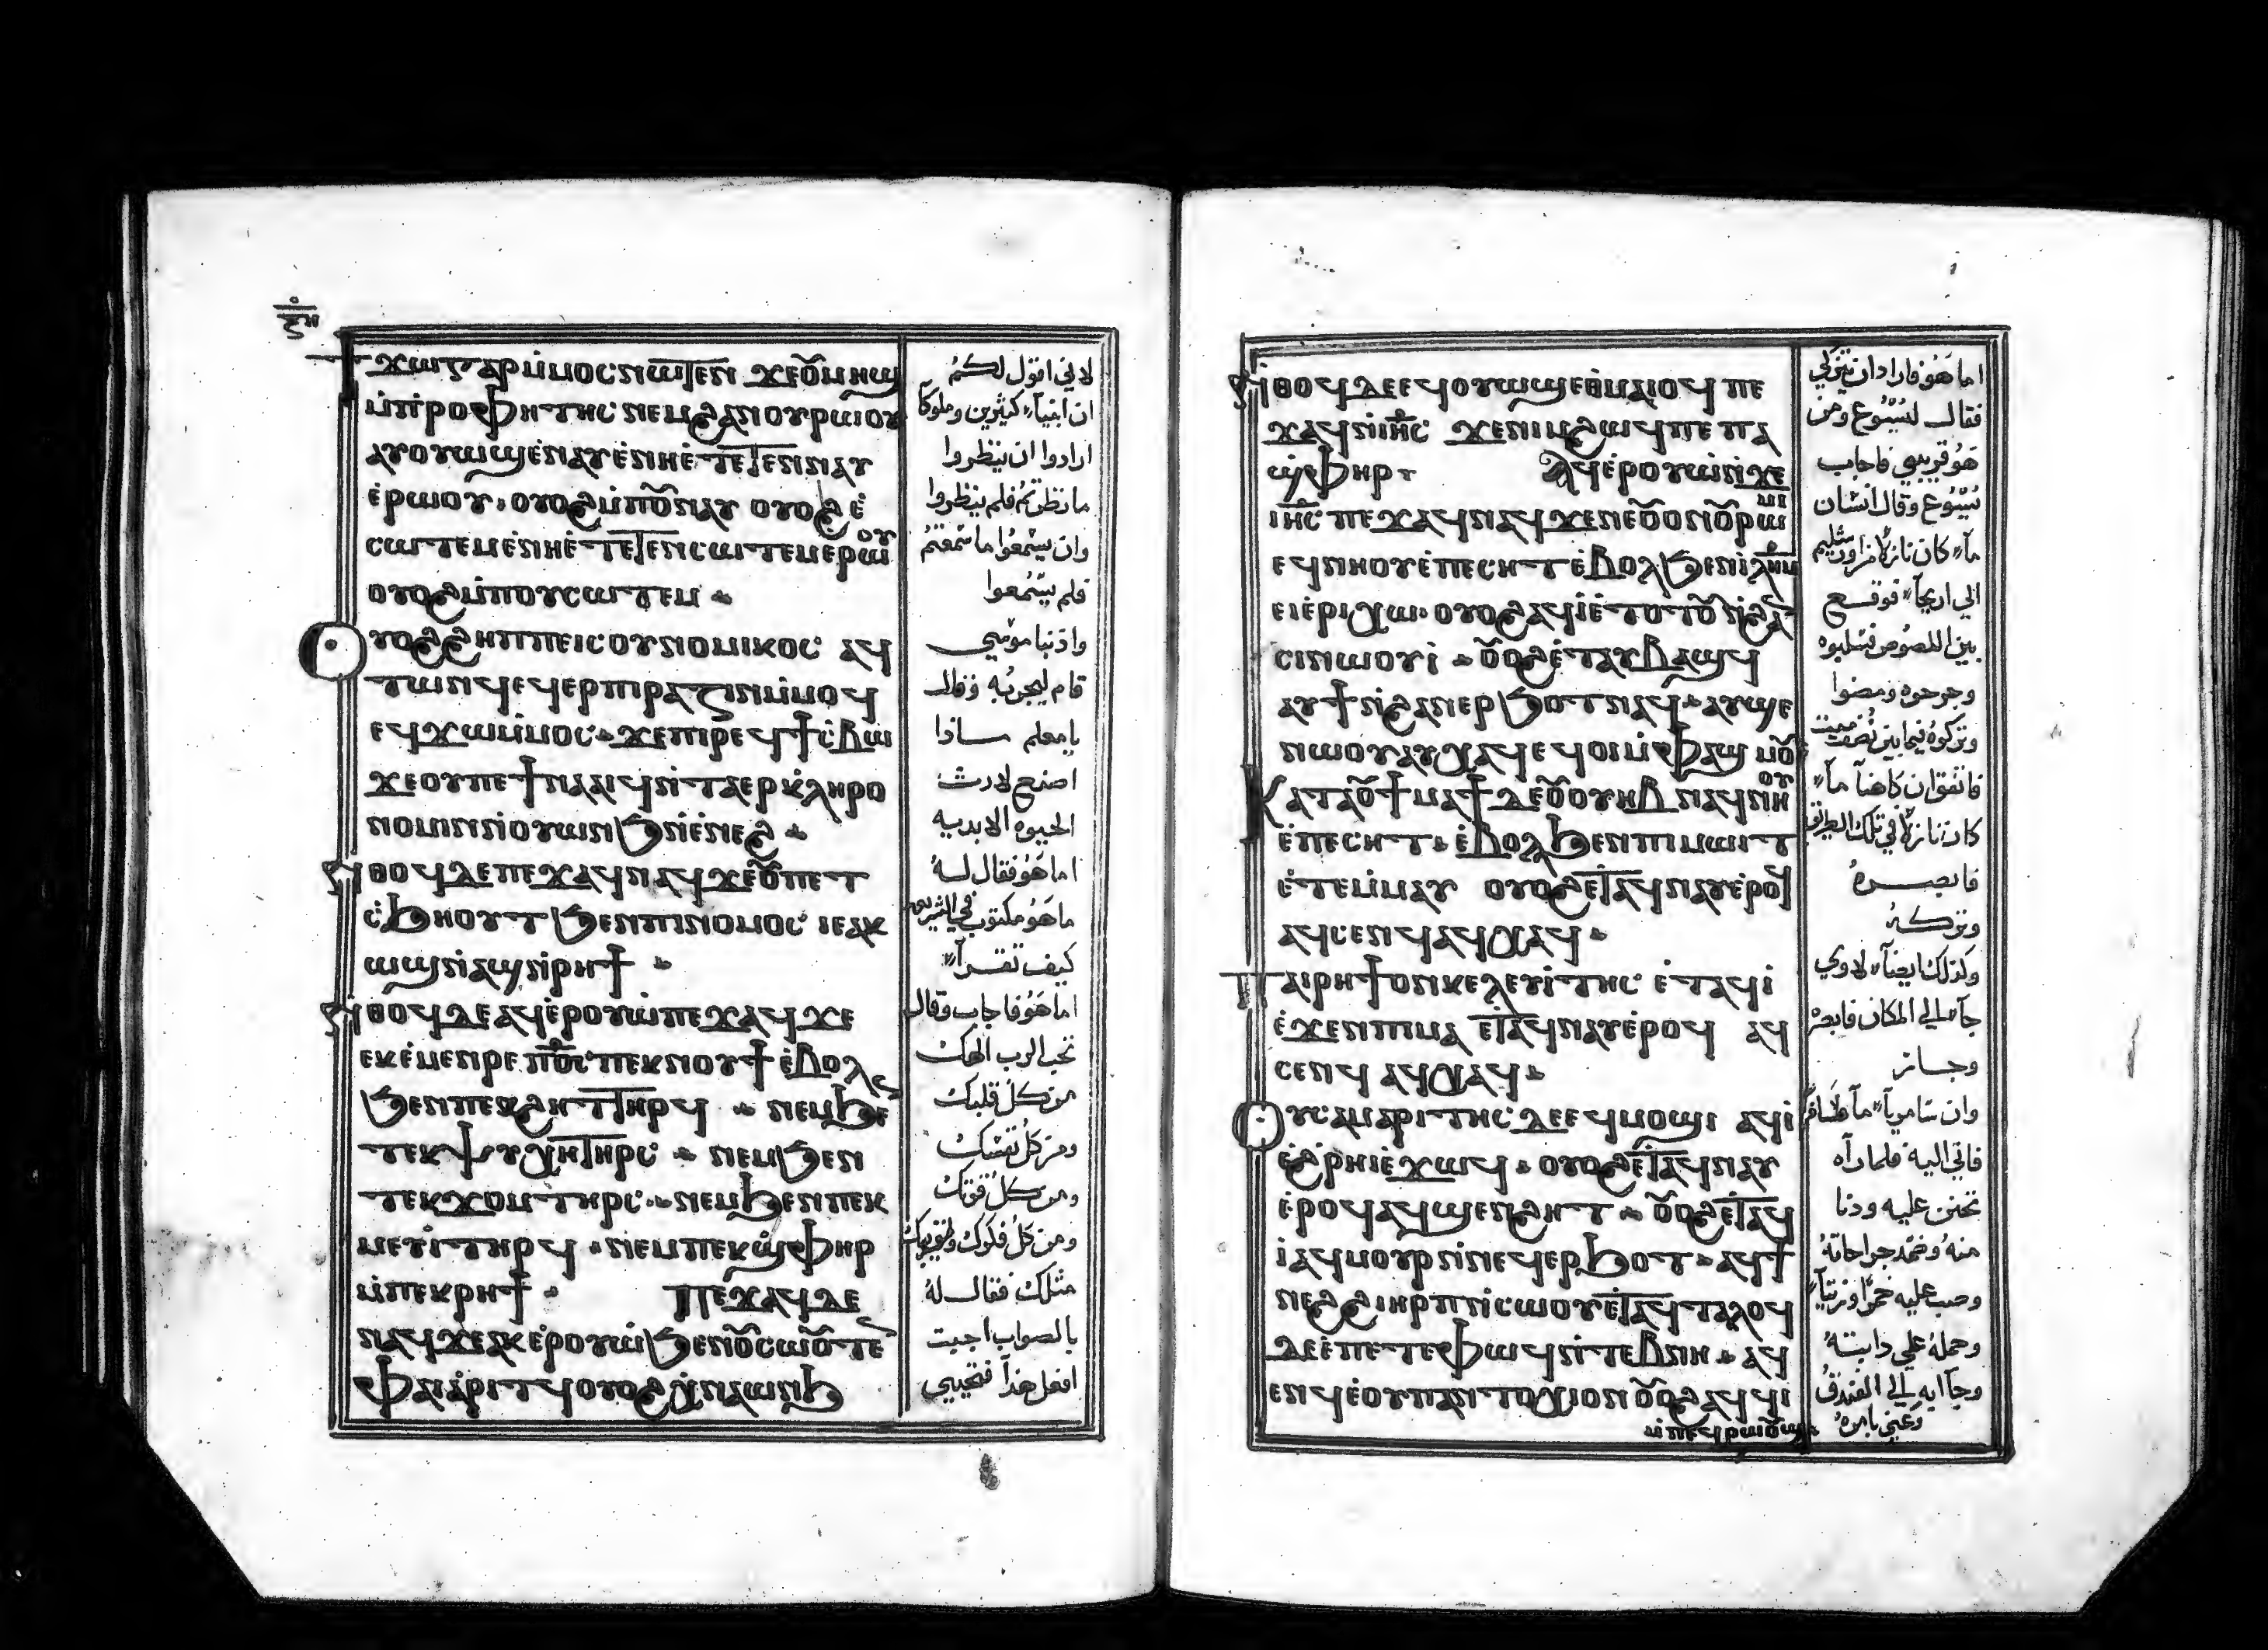 ⲝⲏ
ϯϫⲱⲅⲁⲣⲙ̇ⲙⲟⲥⲛⲱⲧⲉⲛ ϫⲉⲟ̅ⲙⲏϣ
ⲙ̇ⲡⲣⲟⲫⲏⲧⲏⲥ ⲛⲉⲙϩⲁⲛⲟⲩⲣⲱⲟⲩ
ⲁⲩⲟⲩⲱϣⲉ̇ⲛⲁⲩⲉ̇ⲛⲏⲉ̇ⲧⲉⲧⲉⲛⲛⲁⲩ
ⲉ̇ⲣⲱⲟⲩ, ⲟⲩⲟϩⲙ̇ⲡⲟ̅ⲛⲁⲩ ⲟⲩⲟϩⲉ̇
ⲥⲱⲧⲉⲙⲉ̇ⲛⲏⲉ̇ⲧⲉⲧⲉⲛⲥⲱⲧⲉⲙⲉⲣⲱⲟⲩ
ⲟⲩⲟϩⲙ̇ⲡⲟⲩⲥⲱⲧⲉⲙ
ⲟⲩⲟϩϩⲏⲡⲡⲉⲓⲥⲟⲩⲛⲟⲙⲓⲕⲟⲥ ⲁϥ
ⲧⲱⲛϥⲉϥⲉⲣⲡⲓⲣⲁⲍⲓⲛⲙ̇ⲙⲟϥ
ⲉϥϫⲱⲙ̇ⲙⲟⲥ ϫⲉⲡⲓⲣⲉϥϯⲥ̇ⲃⲱ
ϫⲉⲟⲩⲡⲉϯⲛⲁⲁⲓϥⲛ̇ⲧⲁⲉⲣⲕ̇ⲗⲏⲣⲟ
ⲛⲟⲙⲓⲛⲛ̇ⲟⲩⲱⲛϧⲛ̇ⲉ̇ⲛⲉϩ
ⲛ̇ⲑⲟϥⲇⲉⲡⲉϫⲁϥⲛⲁϥϫⲉⲟ̅ⲡⲉⲧ
ⲥ̇ϧⲏⲟⲩⲧϧⲉⲛⲡⲓⲛⲟⲙⲟⲥ ⲓⲉⲁⲕ
ⲱϣⲛ̇ⲁϣⲛ̇ⲣⲏϯ
ⲛ̇ⲑⲟϥⲇⲉⲁϥⲉ̇ⲣⲟⲩⲱ̇ⲡⲉϫⲁϥϫⲉ
ⲉⲕⲉ̇ⲙⲉⲛⲣⲉⲡⲟ̅ⲥ̅ⲡⲉⲕⲛⲟⲩϯ ⲉ̇ⲃⲟⲗ
ϧⲉⲛⲡⲉⲕϩⲏⲧⲧⲏⲣϥ ⲛⲉⲙϧⲉⲛ
ⲧⲉⲕⲯⲩⲭⲏⲧⲏⲣⲥ ⲛⲉⲙϧⲉⲛ
ⲧⲉⲕϫⲟⲙⲧⲏⲣⲥ ⲛⲉⲙϧⲉⲛⲡⲉⲕ
ⲙⲉⲩⲓ̇ⲧⲏⲣϥ ⲛⲉⲙⲡⲉⲕϣ̇ⲫⲏⲣ
ⲙ̇ⲡⲉⲕⲣⲏϯ ⲡⲉϫⲁϥⲇⲉ
ⲛⲁϥϫⲉⲁⲕⲉ̇ⲣⲟⲩⲱ̇ϧⲉⲛⲟ̅ⲥⲱⲟ̅ⲧⲉⲛ
ⲫⲁⲓⲁ̇ⲣⲓⲧϥⲟⲩⲟϩⲭ̇ⲛⲁⲱⲛϧ
لاني اقول لكم
ان انبيآ كثيرين وملوكا
ارادوا ان ينظروا
ما نظرتم فلم ينظروا
وان يسمعوا ما سمعتم
فلم يسمعوا
واذ ناموسي
قام ليجربه وقال
يا معلم ماذا
اصنع لارث
الحيوه الابديه
اما هو فقال له
ما هو مكتوب في الشريعه
كيف تقرآ
اما هو فاجاب وقال
تحب الرب الهك
من كل قلبك
ومن كل نفسك
ومن كل قوتك
ومن كل فكرك وقريبك
مثلك فقال له
بالصواب اجبت
افعل هذا فتحيي
ⲛ̇ⲑⲟϥⲇⲉⲉϥⲟⲩⲱϣⲉⲑⲙⲁⲓⲟϥ ⲡⲉ
ϫⲁϥⲛ̇ⲓⲏ̅ⲥ̅ ϫⲉⲛⲓⲙϩⲱϥⲡⲉ ⲡⲁ
ϣ̇ⲫⲏⲣ ⲁϥⲉ̇ⲣⲟⲩⲱ̇ⲛ̇ϫⲉ
ⲓⲏ̅ⲥ̅ ⲡⲉϫⲁϥⲛⲁϥϫⲉⲛⲉⲟ̅ⲟⲛⲟ̅ⲣⲱⲙⲓ
ⲉϥⲛⲏⲟⲩⲉ̇ⲡⲉⲥⲏⲧⲉ̇ⲃⲟⲗϧⲉⲛⲓ̇ⲗⲏⲙ
ⲉⲓⲉ̇ⲣⲓⲭⲱ ⲟⲩⲟϩⲁϥⲓ̇ⲉ̇ⲧⲟⲧⲟ̅ⲛ̇ϩⲁⲛ
ⲥⲓⲛⲱⲟⲩⲓ̇ ⲟ̅ⲟϩⲉ̇ⲧⲁⲩⲃⲁϣϥ
ⲁⲩϯⲛ̇ϩⲁⲛⲉⲣϧⲟⲧⲛⲁϥ ⲁⲩϣⲉ
ⲛⲱⲟⲩⲁⲩⲭⲁϥⲉϥⲟⲓⲙ̇ⲫⲁϣⲙⲟ̅
ⲕⲁⲧⲁⲟ̅ϯⲙⲁϯⲇⲉⲟ̅ⲟⲩⲏⲃⲛⲁϥⲛⲏⲟⲩ
ⲉ̇ⲡⲉⲥⲏⲧ ⲉ̇ⲃⲟⲗϧⲉⲛⲡⲓⲙⲱⲓⲧ
ⲉ̇ⲧⲉⲙ̇ⲙⲁⲩ ⲟⲩⲟϩⲉⲧⲁϥⲛⲁⲩⲉ̇ⲣⲟϥ
ⲁϥⲥⲉⲛϥⲁϥⲭⲁϥ
ⲡⲁⲓⲣⲏϯⲟⲛⲕⲉⲗⲉⲩⲓ̇ⲧⲏⲥ ⲉ̇ⲧⲁϥⲓ̇
ⲉ̇ϫⲉⲛⲡⲓⲙⲁ ⲉⲧⲁϥⲛⲁⲩⲉ̇ⲣⲟϥ ⲁϥ
ⲥⲉⲛϥ ⲁϥⲭⲁϥ
ⲟⲩⲥⲁⲙⲁⲣⲓⲧⲏⲥ ⲇⲉⲉϥⲙⲟϣⲓ ⲁϥⲓ̇
ⲉ̇ϩ̇ⲣⲏⲓⲉ̇ϫⲱϥ ⲟⲩⲟϩⲉⲧⲁϥⲛⲁⲩ
ⲉ̇ⲣⲟϥⲁϥϣⲉⲛϩⲏⲧ ⲟ̅ⲟϩⲉⲧⲁϥ
ⲓ̇ⲁϥⲙⲟⲩⲣⲛ̇ⲛⲉϥⲉⲣϧⲟⲧ ⲁϥϯ
ⲛⲉϩϩⲓⲏⲣⲡⲛ̇ⲥⲱⲟⲩⲉⲧⲁϥⲧⲁⲗⲟϥ
ⲇⲉⲉ̇ⲡⲉⲧⲉⲫⲱϥⲛ̇ⲧⲉⲃⲛⲏ ⲁϥ
ⲉⲛϥⲉ̇ⲟⲩⲡⲁⲛⲧⲟⲭⲓⲟⲛⲟ̅ⲟϩⲁϥϥⲓ
ⲙ̇ⲡⲉϥⲣⲱⲟ̅ϣ
اما هو فاراد ان يتزكي
فقال ليسوع ومن
هو قريبي فاجاب
يسوع وقال انسان
مآ كان نازلا من اورشليم
الي اريحآ فوقع
بين اللصوص فسلبوه
وجرحوه ومضوا
وتركوه فيما بين نصف ميت
فاتفق ان كاهنآ مآ
كان نازلا في تلك الطريق
فابصره
وتركه
وكذلك ايضآ لاوي
جآ الي المكان فابصره
وجاز
وان سامريآ مآ مسافرا
فاتي اليه فلما رآه
تحنن عليه ودنا
منه وضمد جراحاته
وصب عليه خمرا وزيتآ
وحمله علي دابته
وجآ به الي الفندق
وعني بامره